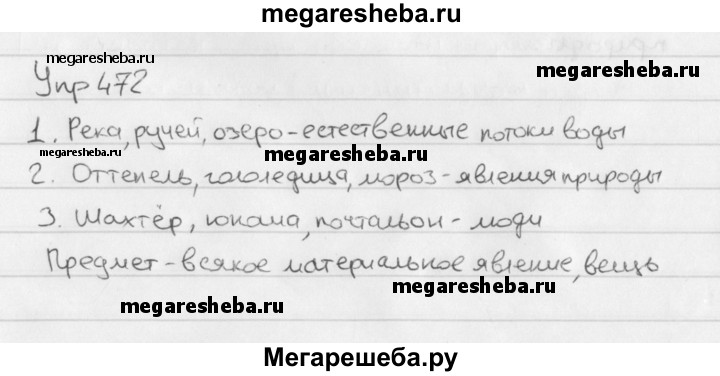 megaresheba.ru
Упр 472
megaresheba.ru
megaresheba.ru
1. Река, ручей, озеро - естественные потоки воды
megaresheba.ru
megaresheba.ru
2. Оттепель, гололедица, мороз - явления природы
3. Шахтёр, юнама, почтальон - люди
Предмет - всякое материальное явление, вещь
megaresheba.ru
megaresheba.ru
Мегарешеба.ру